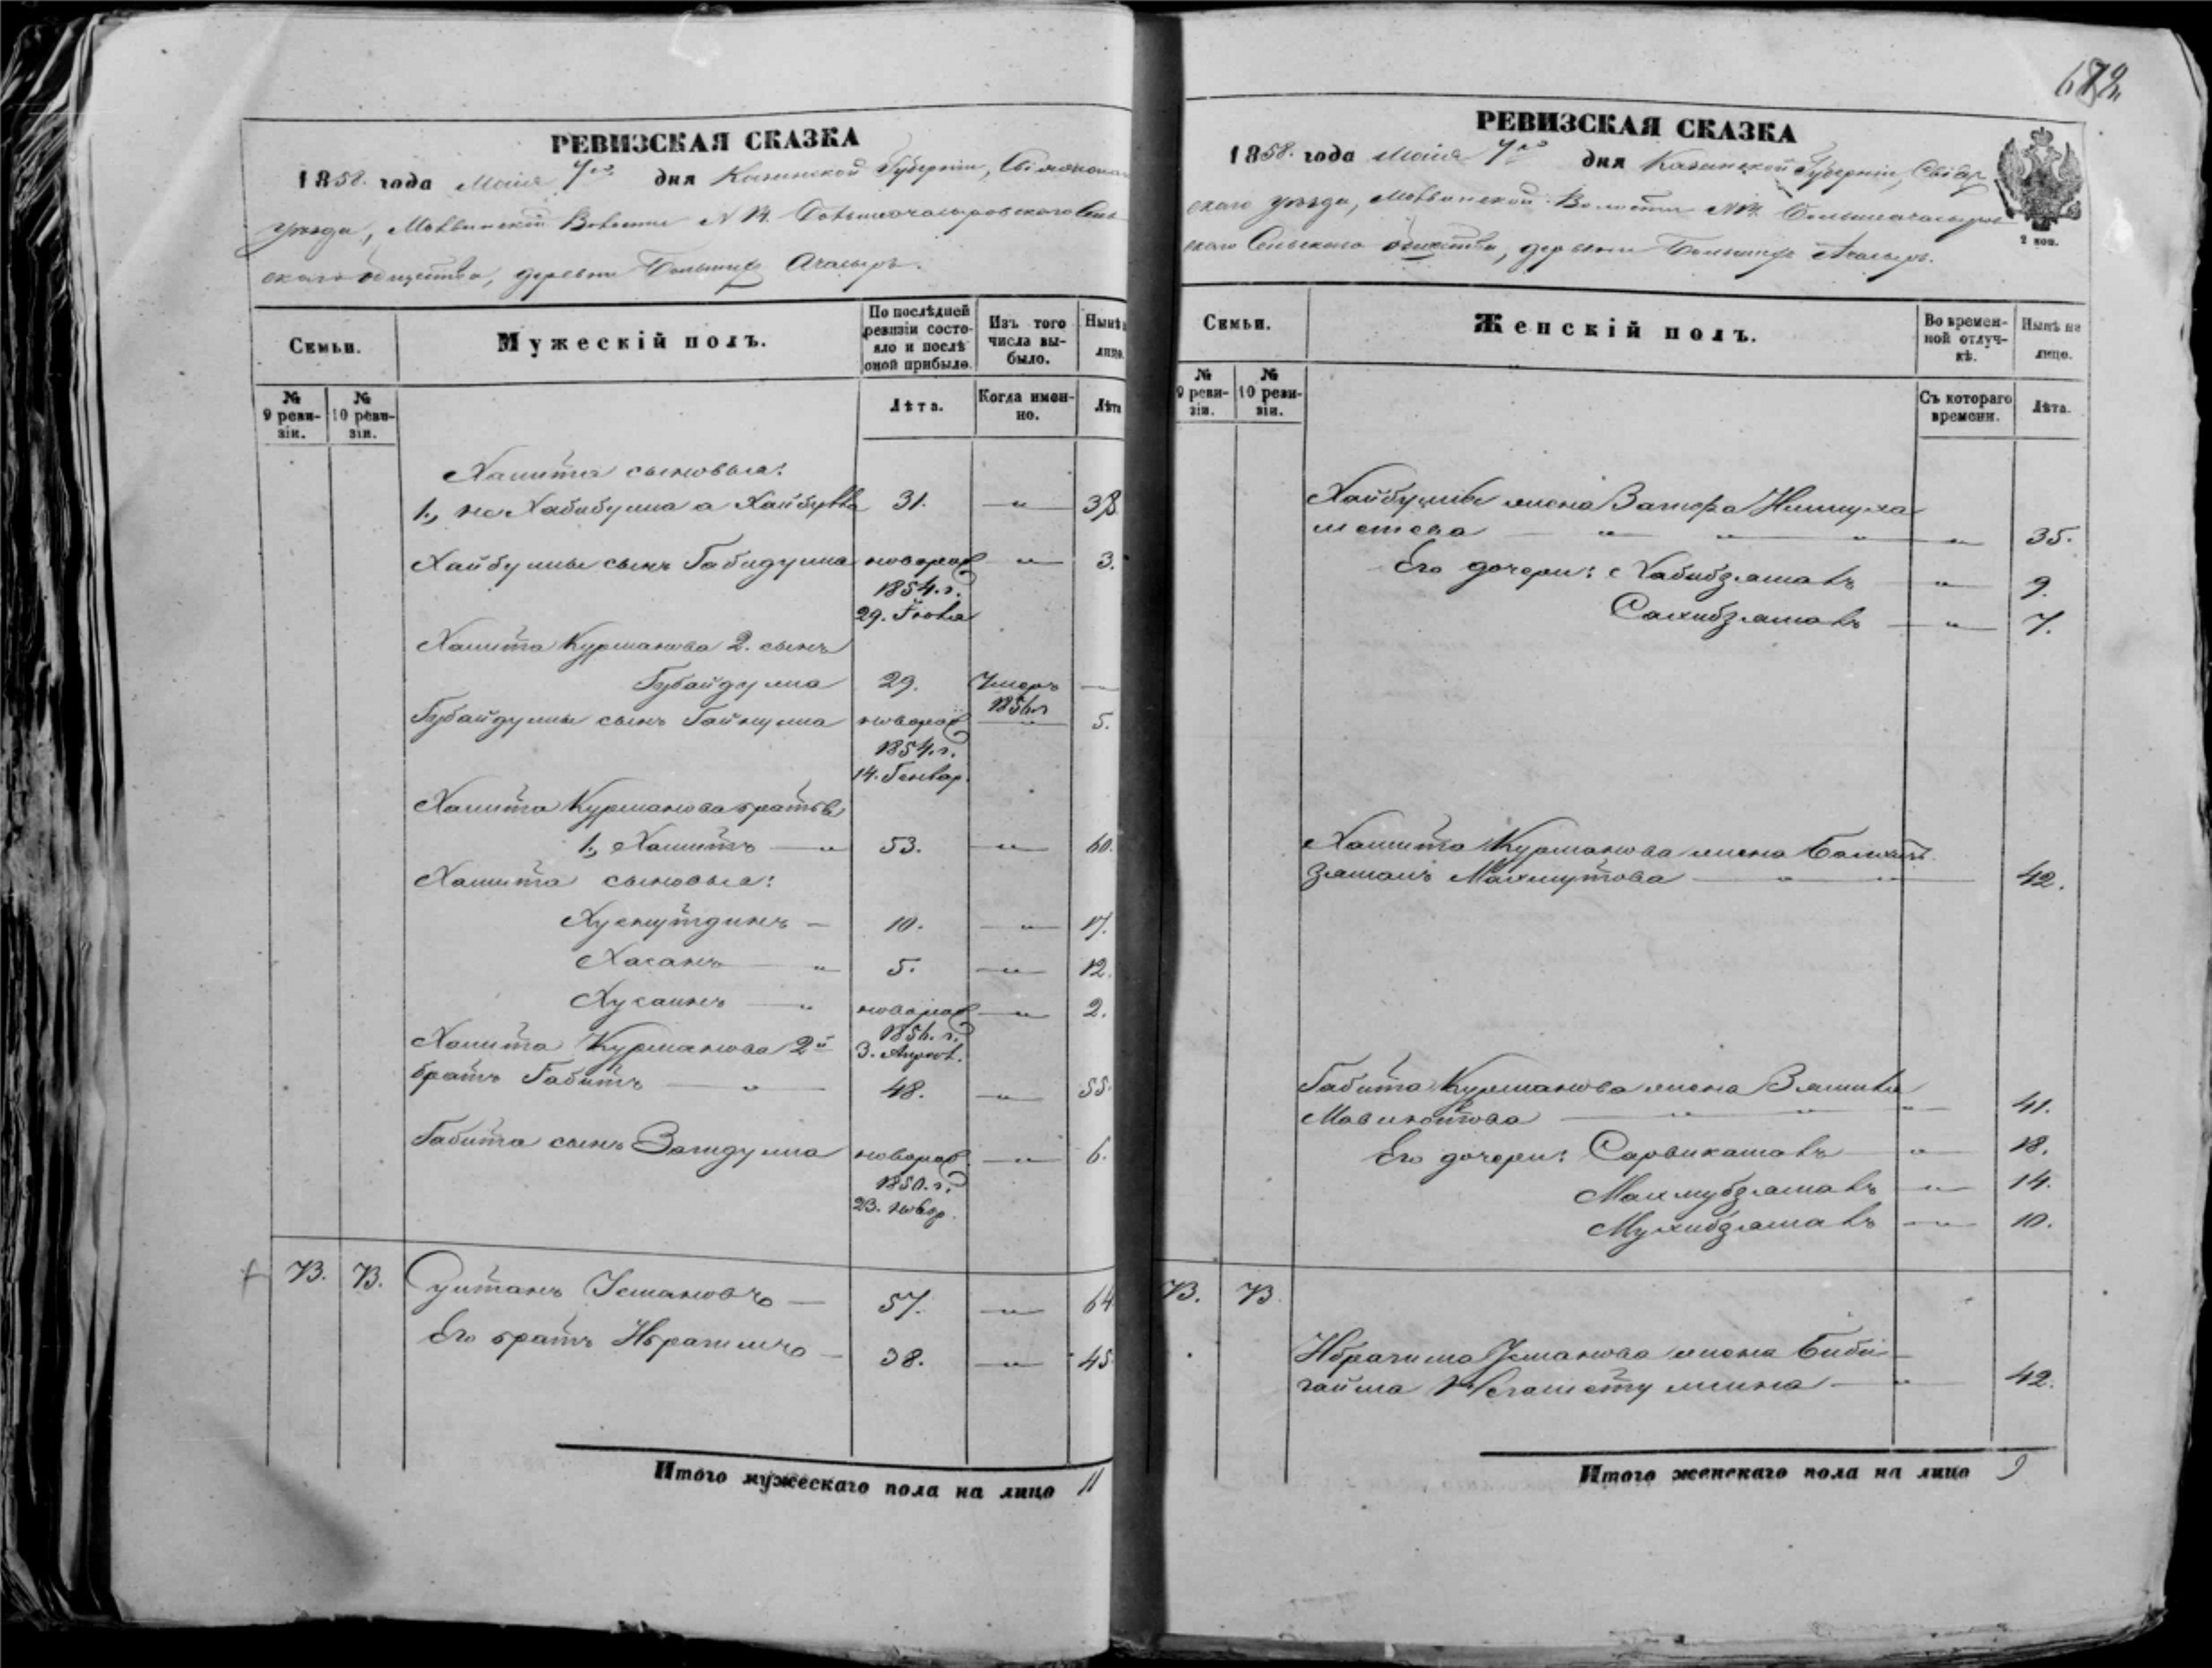 682
РЕВИЗСКАЯ СКАЗКА
1858. года Маія 7го дня Казанской Губерніи,
уѣзда, Волости Сель
скаго общества, деревни Большихъ Ачасыръ.
Семьи.
Мужескій полъ.
По послѣдней ревизіи состояло и послѣ оной прибыло.
Изъ того числа выбыло.
Нынѣ
лицо.
№ 9 ревизіи.
№ 10 ревизіи.
Лѣта.
Когда именно.
Лѣта
Хамита сыновья:
1., не Хабибулла а Хайбулла 31. — " — 38.
Хайбуллы сынъ Габидулла новорож — " — 3.
1854. г.
29. Іюля
Хамита Курманова 2. сынъ
Губайдулла 29. Умеръ —
1856 г
Губайдуллы сынъ Гайнулла новорож — " — 5.
1854. г.
14. Генвар.
Хамита Курманова братья
1., Хамитъ — " 53. — " — 60.
Хамита сыновья:
Хуснутдинъ — 10. — " — 17.
Хасанъ — " 5. — " — 12.
Хусаинъ — " новорож — " — 2.
1856. г.
3. Апрѣл.
Хамита Курманова 2й
братъ Габитъ — " — 48. — " — 55.
Габита сынъ Загидулла новорож. — " — 6.
1850. г.
23. нояб.
73. 73. Султанъ Усмановъ — 57. — " — 64
Его братъ Ибрагимъ — 38. — " — 45
Итого мужескаго пола на лицо 11
РЕВИЗСКАЯ СКАЗКА
1858. года Маія 7го дня Казанской Губерніи,
скаго уѣзда, Волости
скаго Сельскаго общества, деревни Большихъ Ачасыръ.
2 коп.
Семьи.
Женскій полъ.
Во временной отлучкѣ.
Нынѣ на лицо.
№ 9 ревизіи.
№ 10 ревизіи.
Съ котораго времени.
Лѣта.
Хайбуллы жена
— " " " — " — 35.
Его дочери: Хабибзямалъ — " — 9.
Сахибзямалъ — " — 7.
Хамита Курманова жена
зямалъ Махмутова — " " — 42.
Габита Курманова жена
— " " " — 41.
Его дочери: Сарвикамалъ — " — 18.
Махмубзямалъ — " — 14.
Мухибзямалъ — " — 10.
73. 73.
Ибрагима Усманова жена Биби
— " — 42.
Итого женскаго пола на лицо 9